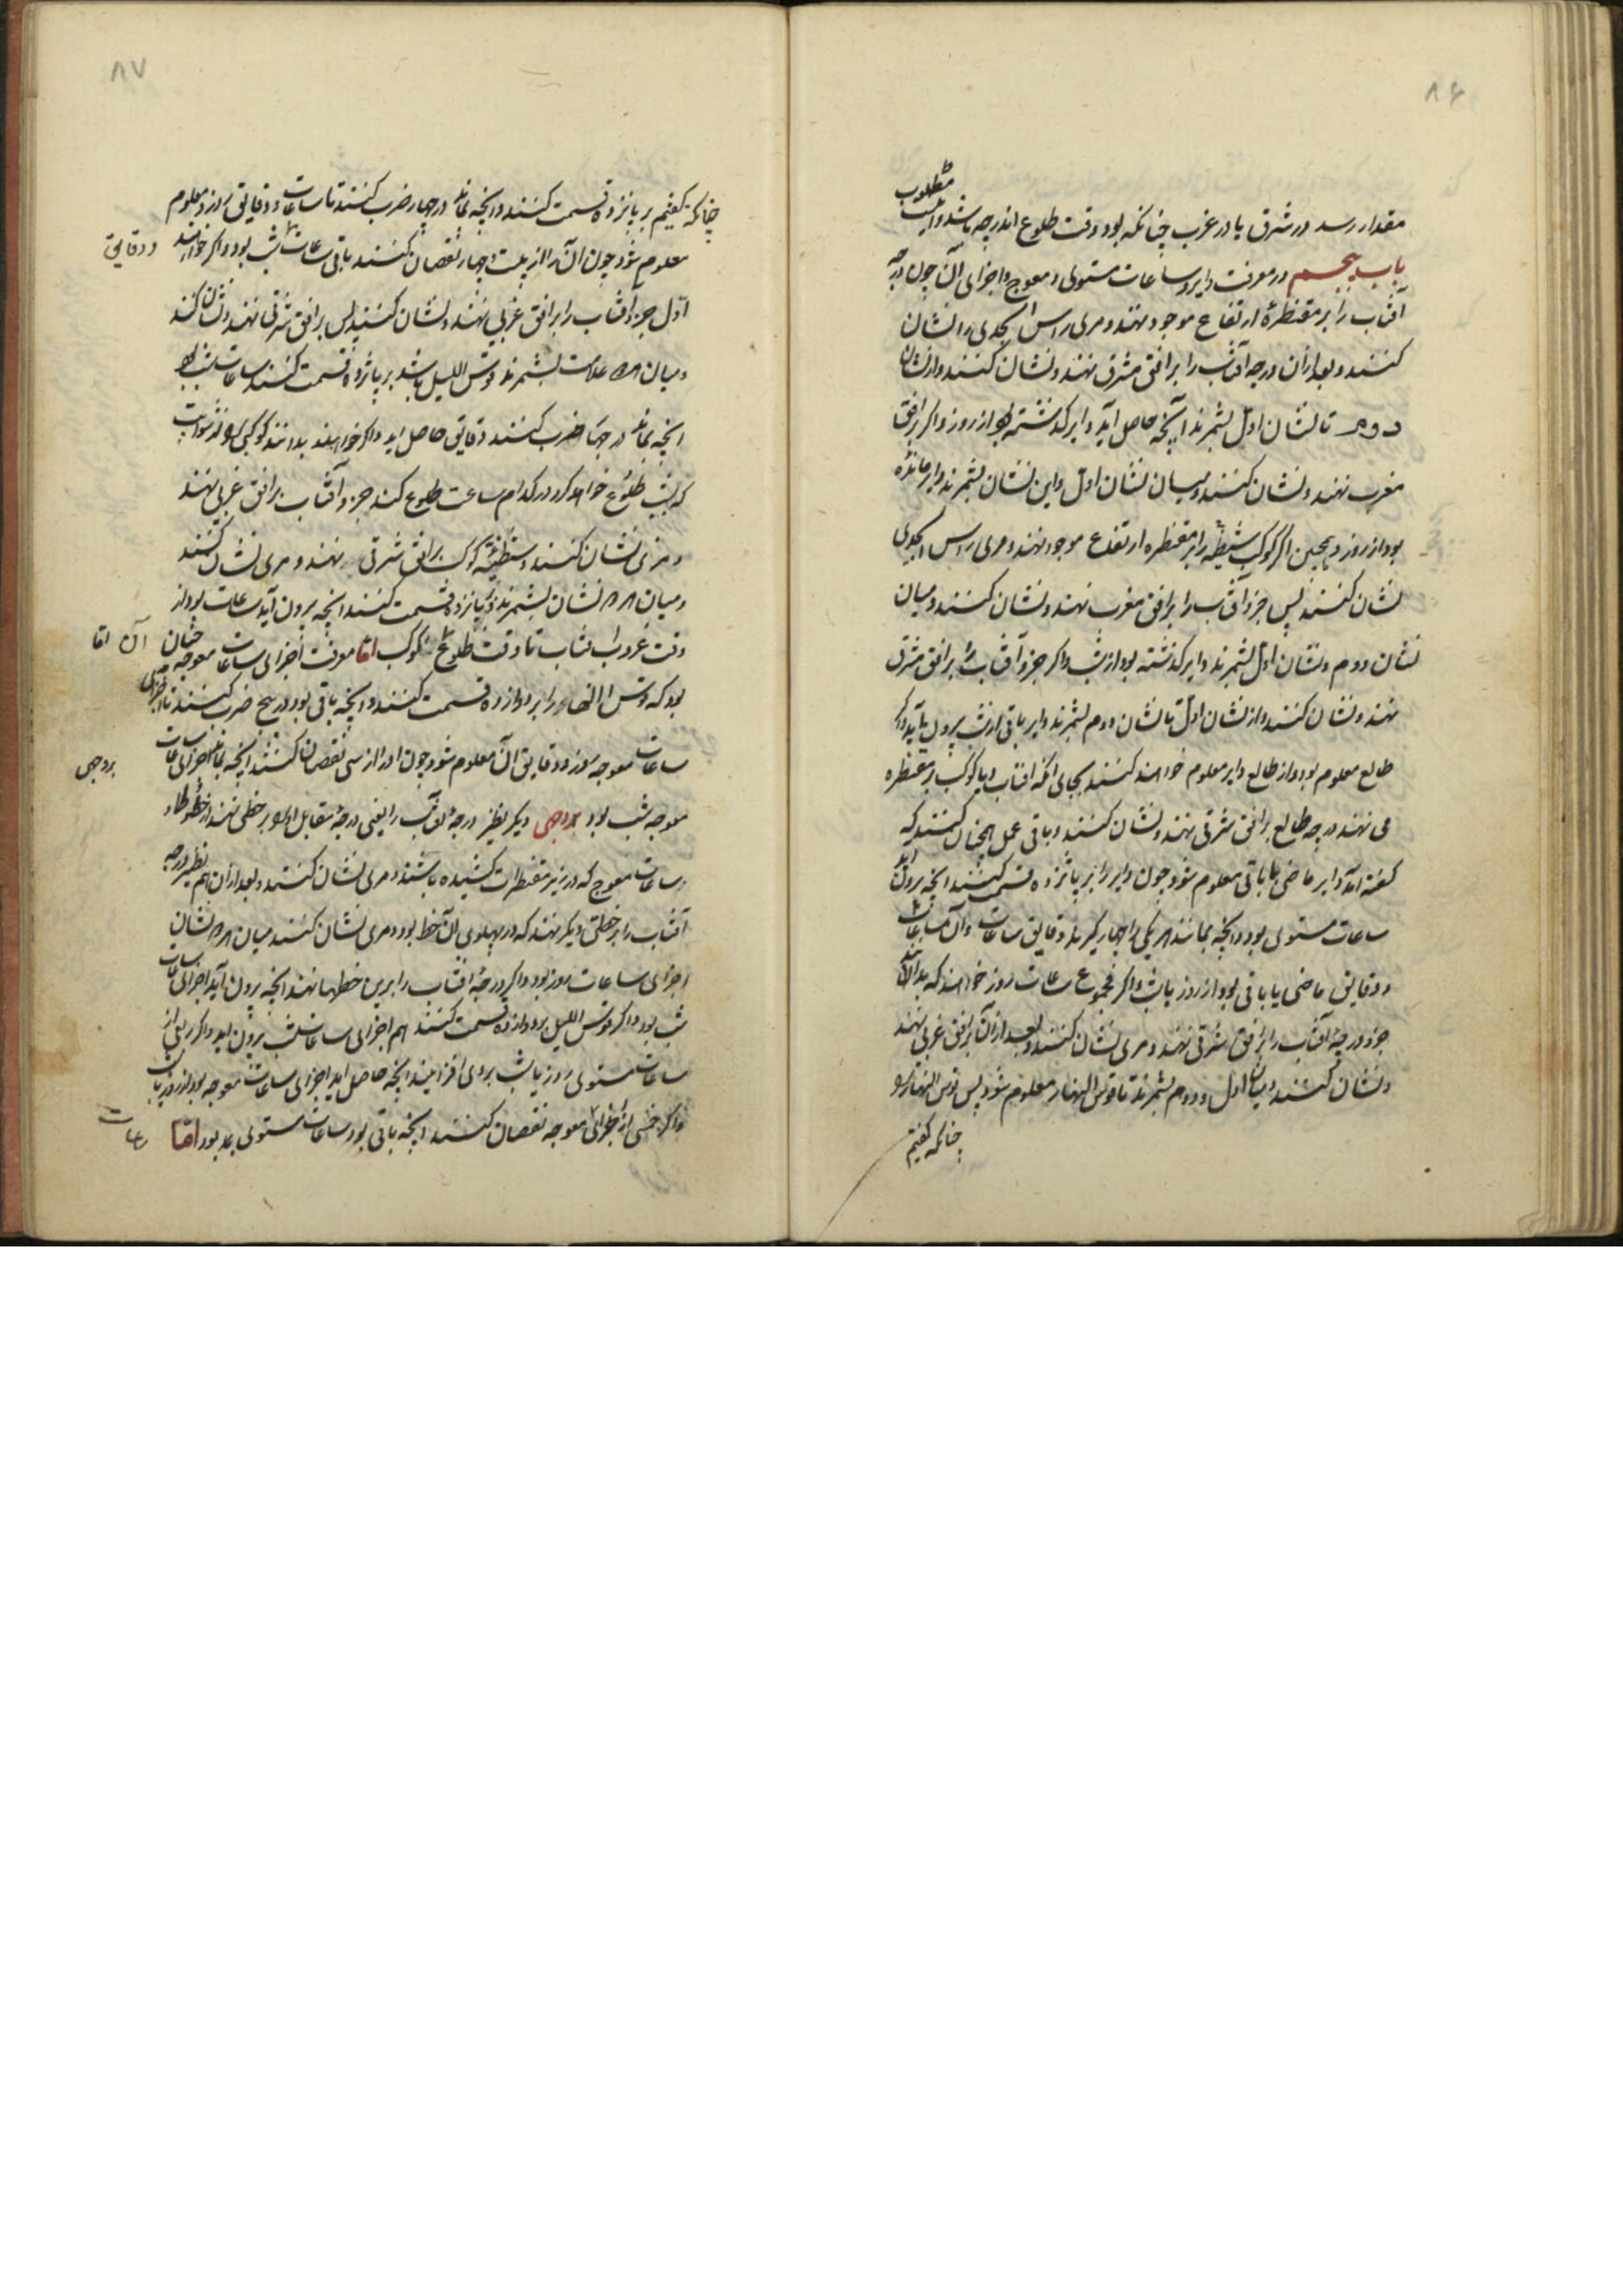 ۸۶
مطلوب
مقدار رسد در شرق یا در غرب چنانکه بود وقت طلوع اندرجه باشد والله
باب پنجم در معرفت دایر و ساعات مستوی و معوج و اجزای آن چون درجه
آفتاب را بر مقنطرهٔ ارتفاع موجود نهند و مری راس الجدی را نشان
کنند و بعد ازان درجه آفتاب را بر افق مشرق نهند و نشان کنند و از نشان
دوم تا نشان اول بشمرند آنچه حاصل آید دایر گذشته بود از روز و اگر بر افق
مغرب نهند و نشان کنند و میان نشان اول و این نشان بشمرند دایر مانده
بود از روز و همچنین اگر کوکب شظیه را بر مقنطره ارتفاع موجود نهند و مری راس الجدی
نشان کنند پس جزو آفتاب را بر افق مغرب نهند و نشان کنند و میان
نشان دوم و نشان اول بشمرند دایر گذشته بود از شب و اگر جزو آفتاب را بر افق مشرق
نهند و نشان کنند و از نشان اول تا نشان دوم بشمرند دایر باقی از شب بیرون آید و اگر
طالع معلوم بود و از طالع دایر معلوم خواهند کنند بجای آنکه آفتاب و یا کوکب بر مقنطره
می نهند درجه طالع بر افق شرقی نهند و نشان کنند و باقی عمل همچنان کنند که
گفته آمد دایر ماضی یا باقی معلوم شود چون دایر را بر پانزده قسمت کنند آنچه برون آید
ساعات مستوی بود و آنچه بماند هر یکی را چهار گیرند دقایق ساعات و آن ساعات
و دقایق ماضی یا باقی بود از روز یا شب و اگر مجموع ساعات روز خواهند که بدانند
جزو درجهٔ آفتاب را بر افق شرقی نهند و مری نشان کنند و بعد از آن بر افق غربی نهند
و نشان کنند و میان اول و دوم بشمرند تا قوس النهار معلوم شود پس قوس النهار را
چنانکه گفتیم
۸۷
چنانکه گفتیم بر پانزده قسمت کنند و آنچه بماند در چهار ضرب کنند تا ساعات و دقایق روز معلوم
معلوم شود چون آن را از بیست و چهار نقصان کنند باقی ساعات شب بود و اگر خواهند
و دقایق
اول جزو آفتاب را بر افق غربی نهند و نشان کنند پس بر افق شرقی نهند و نشان کنند
و میان هر دو علامت بشمرند قوس اللیل باشد بر پانزده قسمت کنند ساعات شب بود
آنچه بماند در چهار ضرب کنند دقایق حاصل آید و اگر خواهند بدانند کوکبی از ثوابت
که بشب طلوع خواهد کرد در کدام ساعت طلوع کند جزو آفتاب بر افق غربی نهند
و مری نشان کنند و شظیهٔ کوکب بر افق شرقی نهند و مری نشان کنند
و میان هر دو نشان بشمرند و بپانزده قسمت کنند آنچه برون آید ساعات بود از
وقت غروب افتاب تا وقت طلوع کوکب اما معرفت اجزای ساعات معوجه چنان
آن اما
بود که قوس النهار را بر دوازده قسمت کنند و آنچه باقی بود در پنج ضرب کنند تا اجزای
ساعات معوجه روز و دقایق آن معلوم شود چون او را از سی نقصان کنند آنچه بماند اجزای ساعات
معوجه شب بود بروجهی دیگر نظیر درجهٔ آفتاب را یعنی درجهٔ مقابل او را بر خطی نهند از خطوط
بروجهی
ساعات معوج که در زیر مقنطرات کشیده باشند و مری نشان کنند و بعد ازان هم نظیر درجه
آفتاب را بر خطی دیگر نهند که در پهلوی آن خط بود و مری نشان کنند میان هر دو نشان
اجزای ساعات روز بود و اگر درجهٔ افتاب را برین خطها نهند آنچه برون آید اجزای ساعات
شب بود و اگر قوس اللیل بر دوازده قسمت کنند هم اجزای ساعات شب برون آید و اگر ربعی از
ساعات مستوی روز یا شب بروی افزایند آنچه حاصل آید اجزای ساعات معوجه بود از روز یا شب
و اگر خمسی از اجزای معوجه نقصان کنند آنچه باقی بود ساعات مستوی بود اما
ساعات